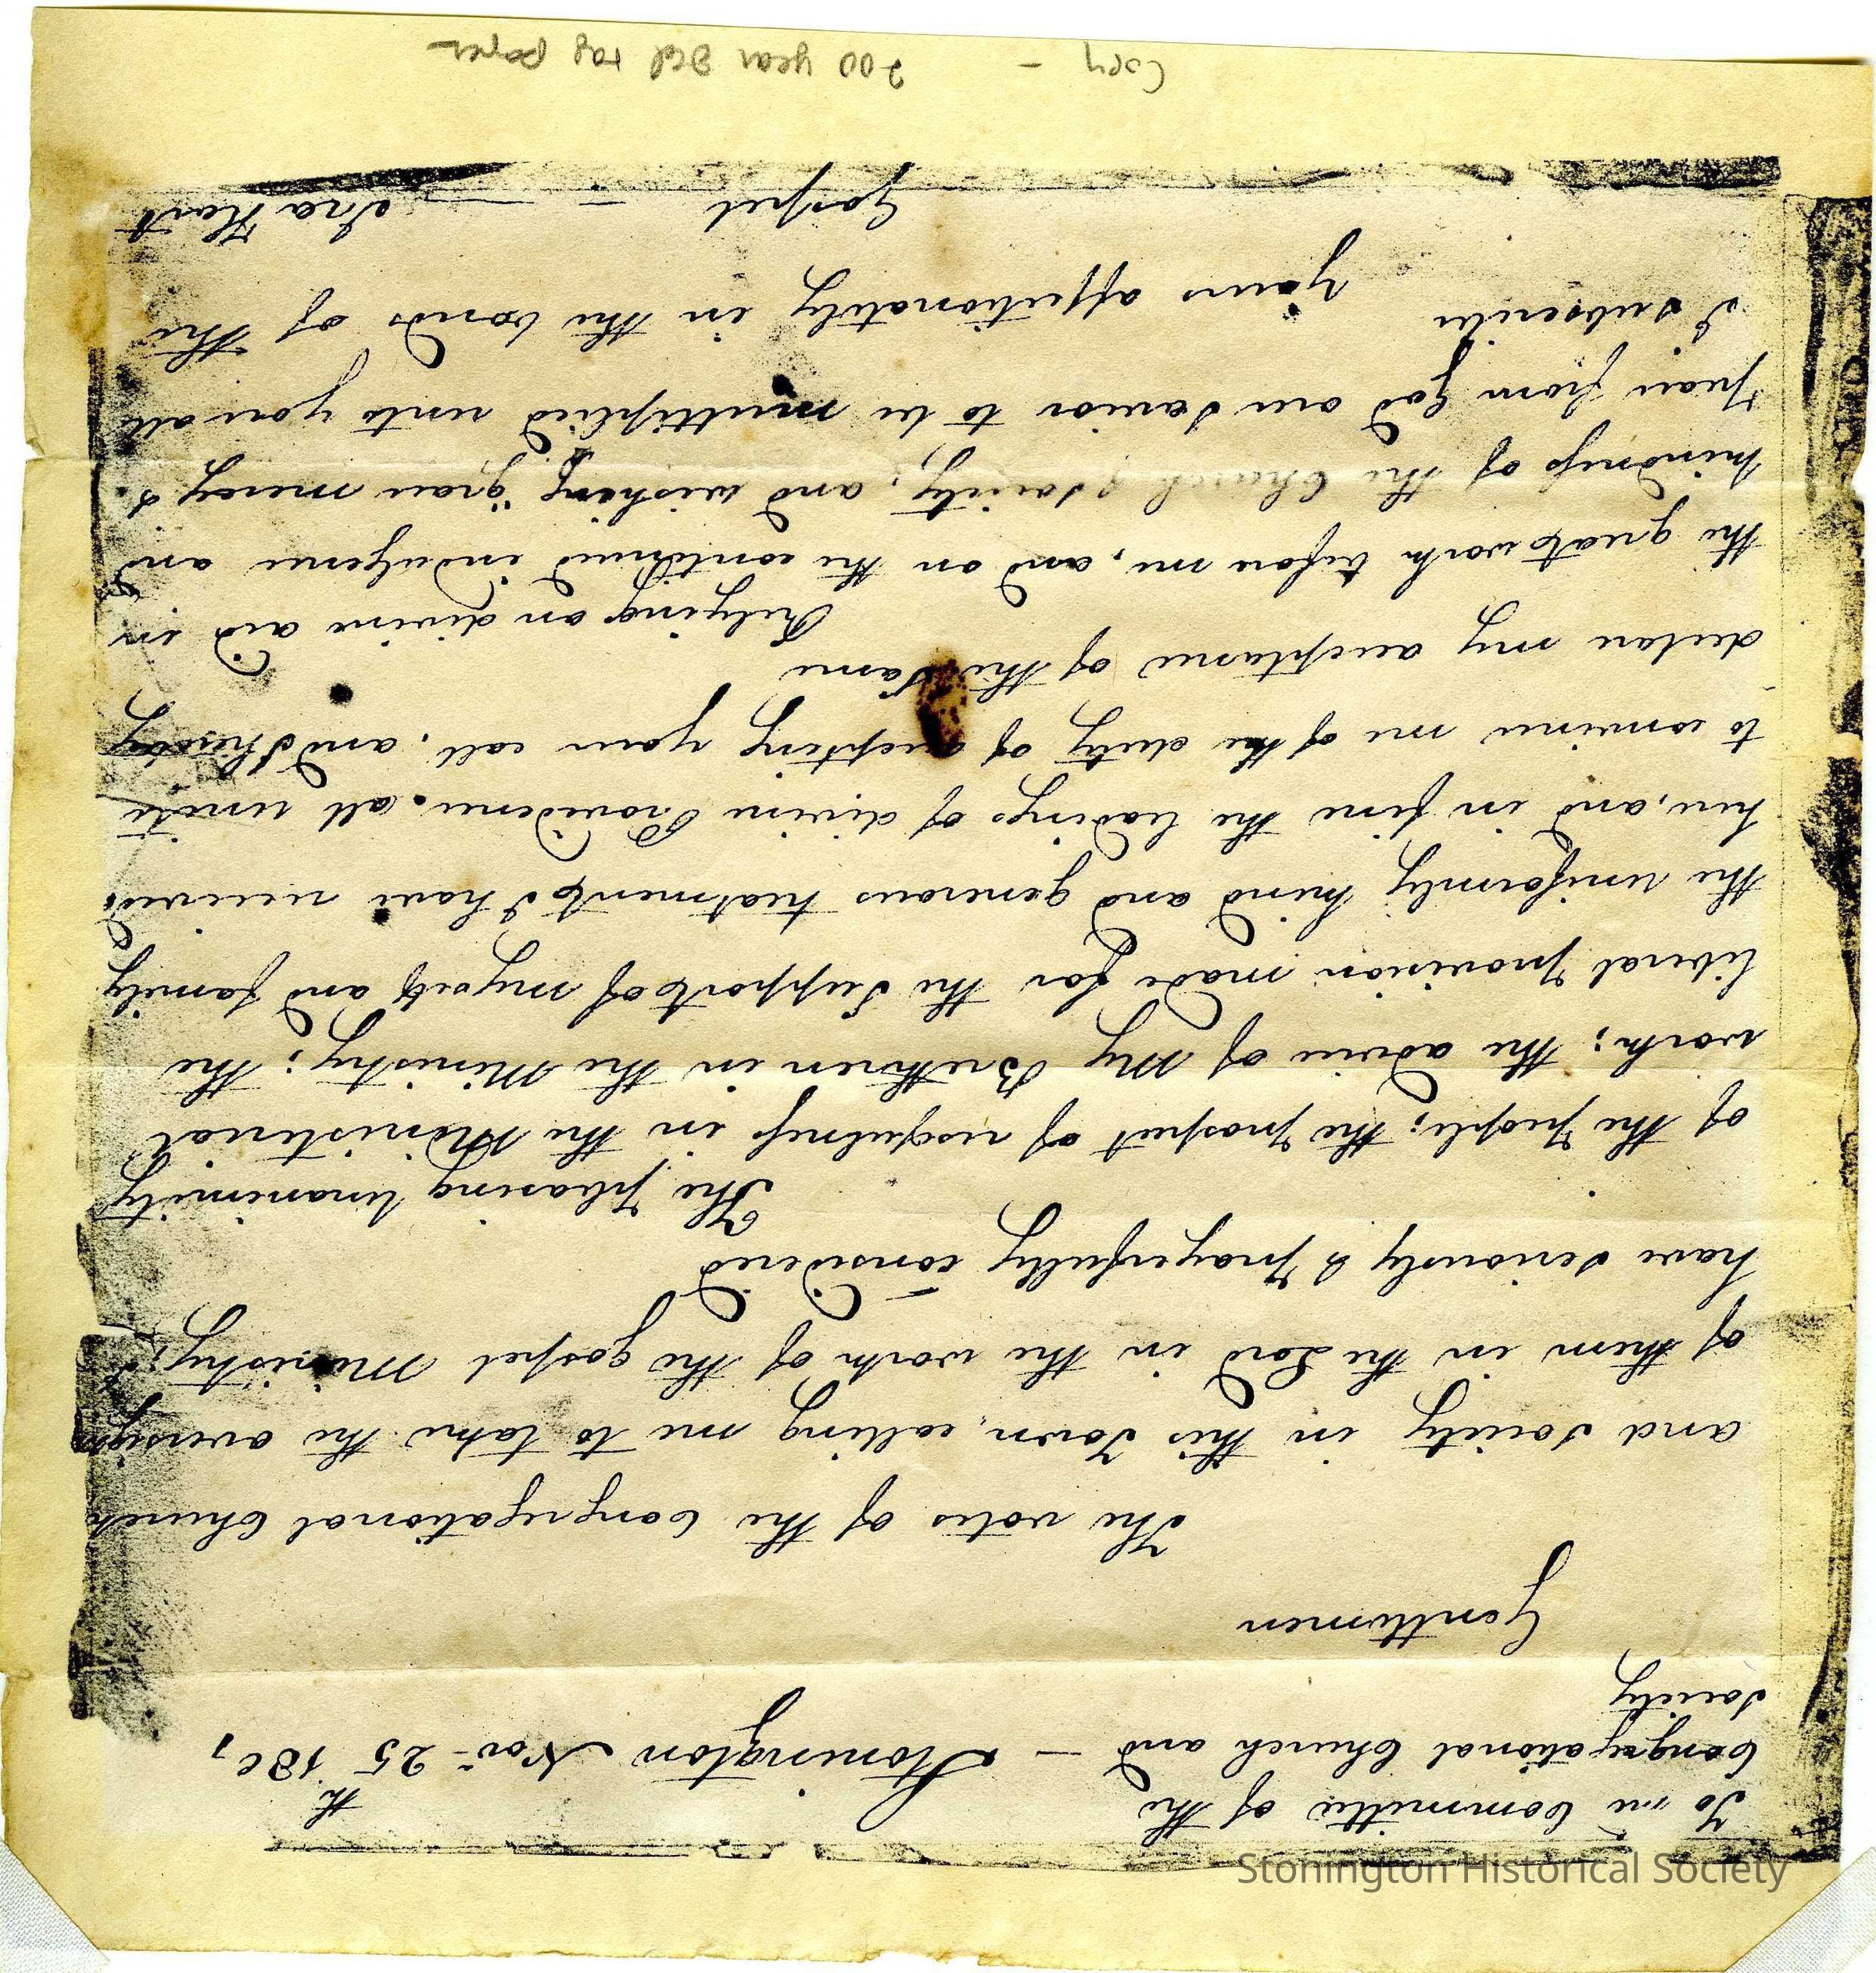 To the Committee of the
Congregational Church and — Stonington Nov- 25th 180,
Society
Gentlemen
The votes of the Congregational Church
and Society in this Town, calling me to take the oversight
of them in the Lord in the work of the gospel Ministry; I
have seriously & prayerfully considered —
The pleasing Unanimity
of the people; the prospect of usefulness in the Ministerial
work; the advice of My Brethren in the Ministry; the
liberal provision made for the Support of myself and family
the uniformly kind and generous treatment I have received
here, and in fine the leadings of divine Providence, all unite
to convince me of the duty of accepting your call, and I hereby
declare my acceptance of the Same
Relying on divine aid in
the great work before me, and on the continued indulgence and
kindness of the Church & Society, and wishing "grace mercy &
peace from God our Savior to be multiplied unto you all
I subscribe yours affectionately in the bonds of the
Gospel — Ira Hart
Copy - 200 year old rag paper
Stonington Historical Society